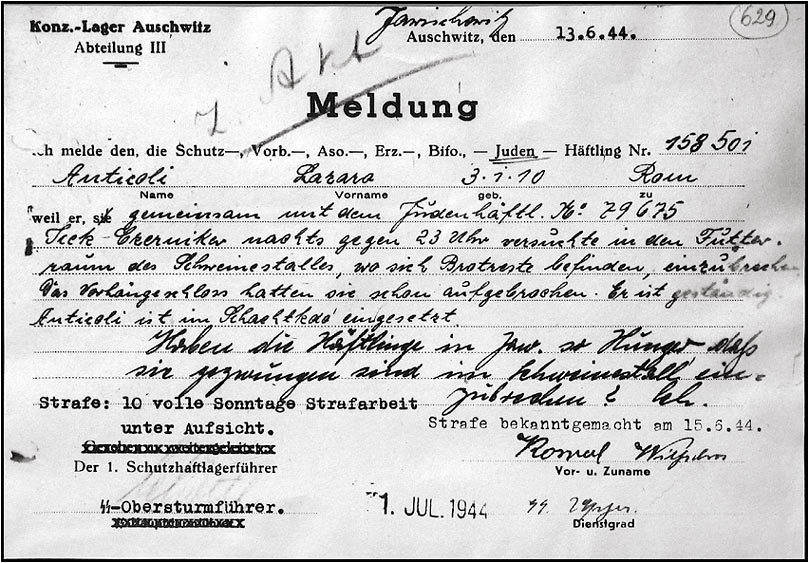 Konz.-Lager Auschwitz
Abteilung III
Jawischowitz
Auschwitz, den 13.6.44.
629
z. Akt
Meldung
Ich melde den, die Schutz—, Vorb.—, Aso—, Erz.—, Bifo., — Juden — Häftling Nr. 158 501
Anticoli Lazaro 3.1.10 Rom
Name Vorname geb. zu
weil er, sie gemeinsam mit dem Judenhäftl. No: 79675
Czerniker nachts gegen 23 Uhr versuchte in den Futter-
raum des Schweinestalles, wo sich Brotreste befinden, einzubrechen
Das Vorhängeschloss hatten sie schon aufgebrochen. Er ist geständig.
Anticoli ist im Schachtkdo eingesetzt
Haben die Häftlinge in Jaw. so Hunger, daß
sie gezwungen sind im Schweinestall ein-
zubrechen?
Strafe: 10 volle Sonntage Strafarbeit
unter Aufsicht.
Strafe bekanntgemacht am 15.6.44.
Der 1. Schutzhaftlagerführer
Vor- u. Zuname
SS-Obersturmführer.
1. JUL. 1944
SS
Dienstgrad